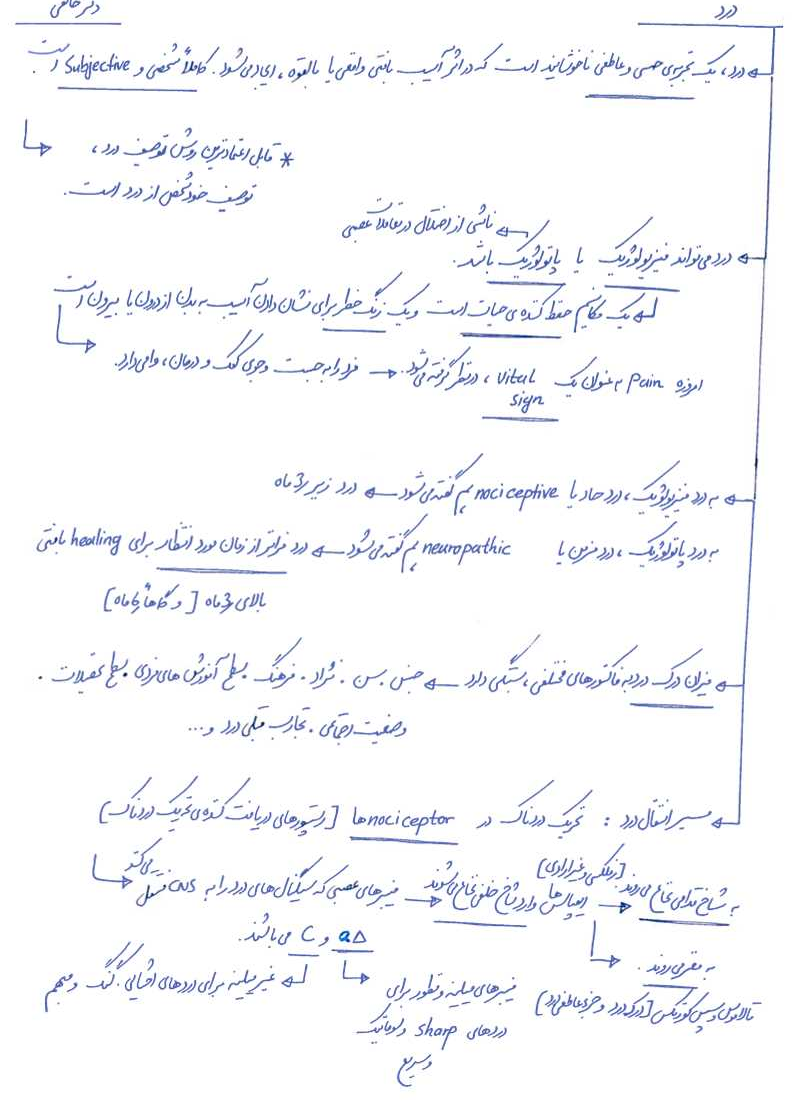 درد
دکتر خالقی
درد، یک تجربه‌ی حسی و عاطفی ناخوشایند است که در اثر آسیب بافتی واقعی یا بالقوه، ایجاد می‌شود. کاملاً شخصی و Subjective است.
* قابل اعتمادترین روش توصیف درد،
توصیف خود شخص از درد است.
ناشی از اختلال در تعاملات عصبی
درد می‌تواند فیزیولوژیک یا پاتولوژیک باشد.
یک مکانیسم حفظ کننده‌ی حیات است و یک زنگ خطر برای نشان دادن آسیب به بدن از درون یا بیرون است
امروزه Pain به عنوان یک vital sign، در نظر گرفته می‌شود. → فرد را به جست و جوی کمک و درمان، وامی‌دارد.
به درد فیزیولوژیک، درد حاد یا nociceptive هم گفته می‌شود ← درد زیر ۳ ماه
به درد پاتولوژیک، درد مزمن یا neuropathic هم گفته می‌شود ← درد فراتر از زمان مورد انتظار برای healing بافتی
بالای ۳ ماه [و گاهاً ۶ ماه]
میزان درک درد به فاکتورهای مختلفی، بستگی دارد ← جنس. سن. نژاد. فرهنگ. سطح آموزش های فردی. سطح تحصیلات.
وضعیت اجتماعی. تجارب قبلی درد و...
مسیر انتقال درد: تحریک دردناک در nociceptor ها [رسپتورهای دریافت کننده‌ی تحریک دردناک]
[رفلکس و غیرارادی]
به شاخ قدامی نخاع می‌روند → ایمپالس ها وارد شاخ خلفی نخاع می‌شوند → فیبرهای عصبی که سیگنال های درد را به CNS منتقل می‌کند
aΔ و C می باشند.
به مغز می‌روند.
تالاموس و سپس کورتکس [درک درد و جزء عاطفی درد]
فیبرهای میلینه و قطور برای
دردهای sharp و سوماتیک
و سریع
غیر میلینه برای دردهای احشایی. گنگ و مبهم